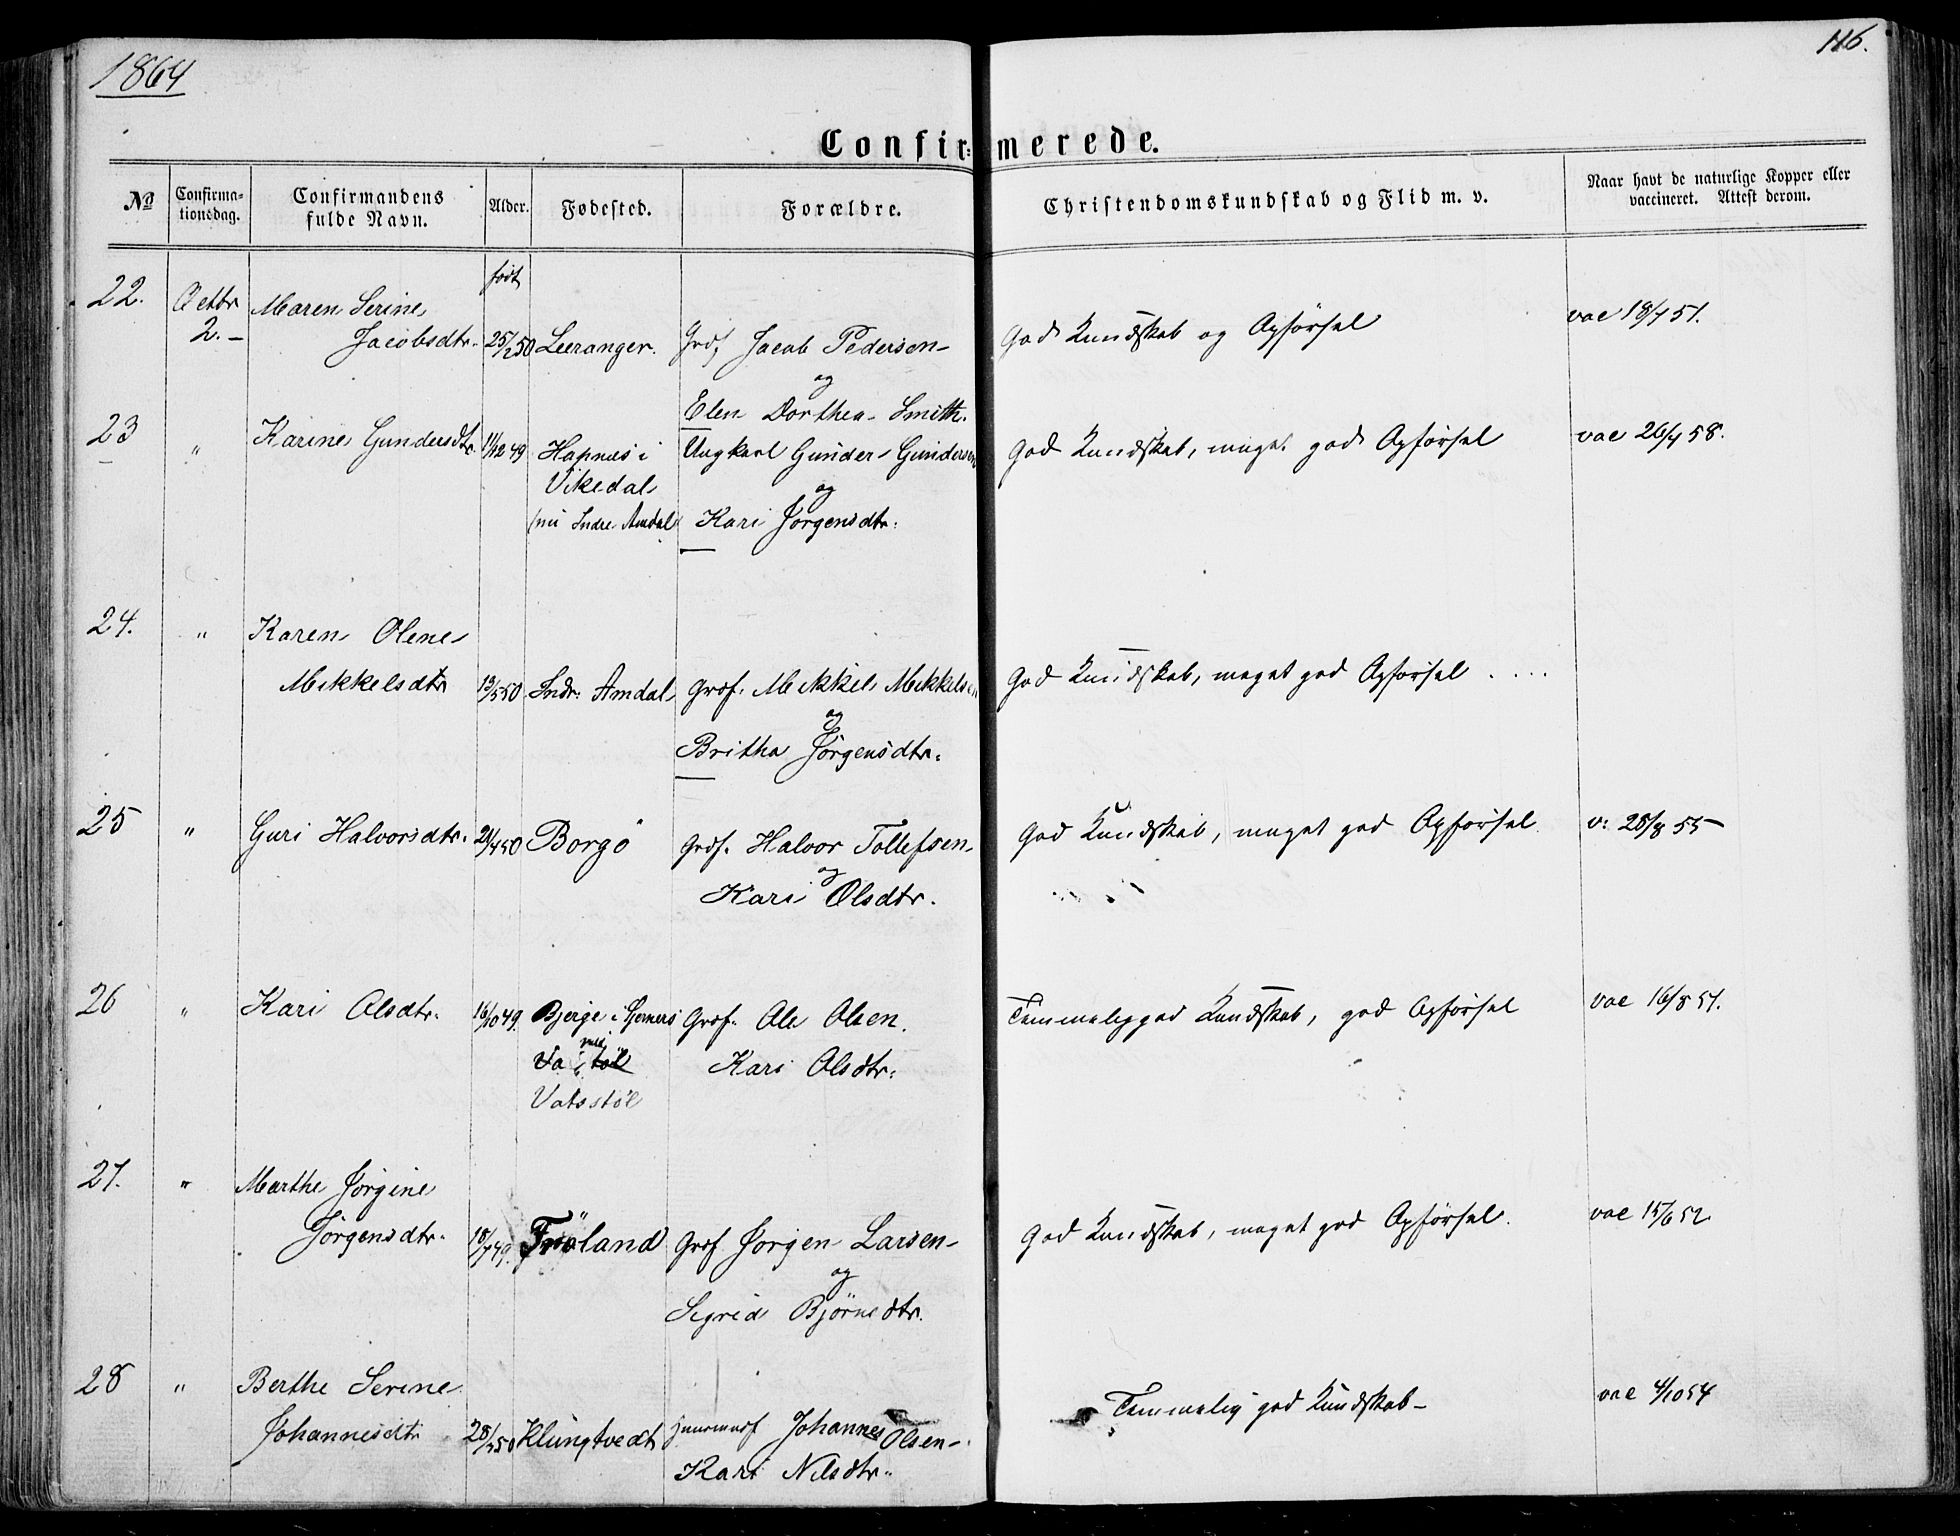 1864
116.
Confirmerede.
№
Confirma-
tionsdag.
Confirmandens
fulde Navn.
Alder.
Fødested.
Forældre.
Christendomskundskab og Flid m. v.
Naar havt de naturlige Kopper eller
vaccineret. Attest derom.
født
22. Octbr Maren Serine
2.– Jacobsdtr. 25/1 50 Leeranger. Grdf Jacob Pedersen God Kundskab og Opførsel vac 18/7 51.
og
Elen Dorthea Smith.
23 " Karine Gundersdtr. 11/12 49 Hapnæs i Ungkarl Gunder Gundersen God Kundskab, meget god Opførsel vac 26/7 58.
Vikedal og
(nu Indre Amdal) Kari Jørgensdtr.
24. " Karen Olene
Mikkelsdtr 13/5 50 Indr: Amdal Grdf. Mikkel Mikkelsen God Kundskab, meget god Opførsel . . . .
og
Britha Jørgensdtr.
25 " Guri Halvorsdtr. 21/4 50 Borgö Grdf. Halvor Tollefsen God Kundskab, meget god Opførsel v: 28/8 55
og
Kari Olsdtr.
26 " Kari Olsdtr. 16/10 49. Bjerge i Grdf. Ole Olsen. Temmelig god Kundskab, god Opførsel vac 16/8 51.
Kari Olsdtr.
Vatsstöl
27. " Marthe Jørgine
Jørgensdtr. 18/7 49. Fröland Grdf Jørgen Larsen God Kundskab, meget god Opførsel. vac 15/6 52
og
Sigrid Bjørnsdtr.
28 " Berthe Serine Temmelig god Kundskab– vac 4/10 54
Johannesdtr 28/2 50 Klungtvedt Huusmand Johannes Olsen
Kari Nilsdtr.